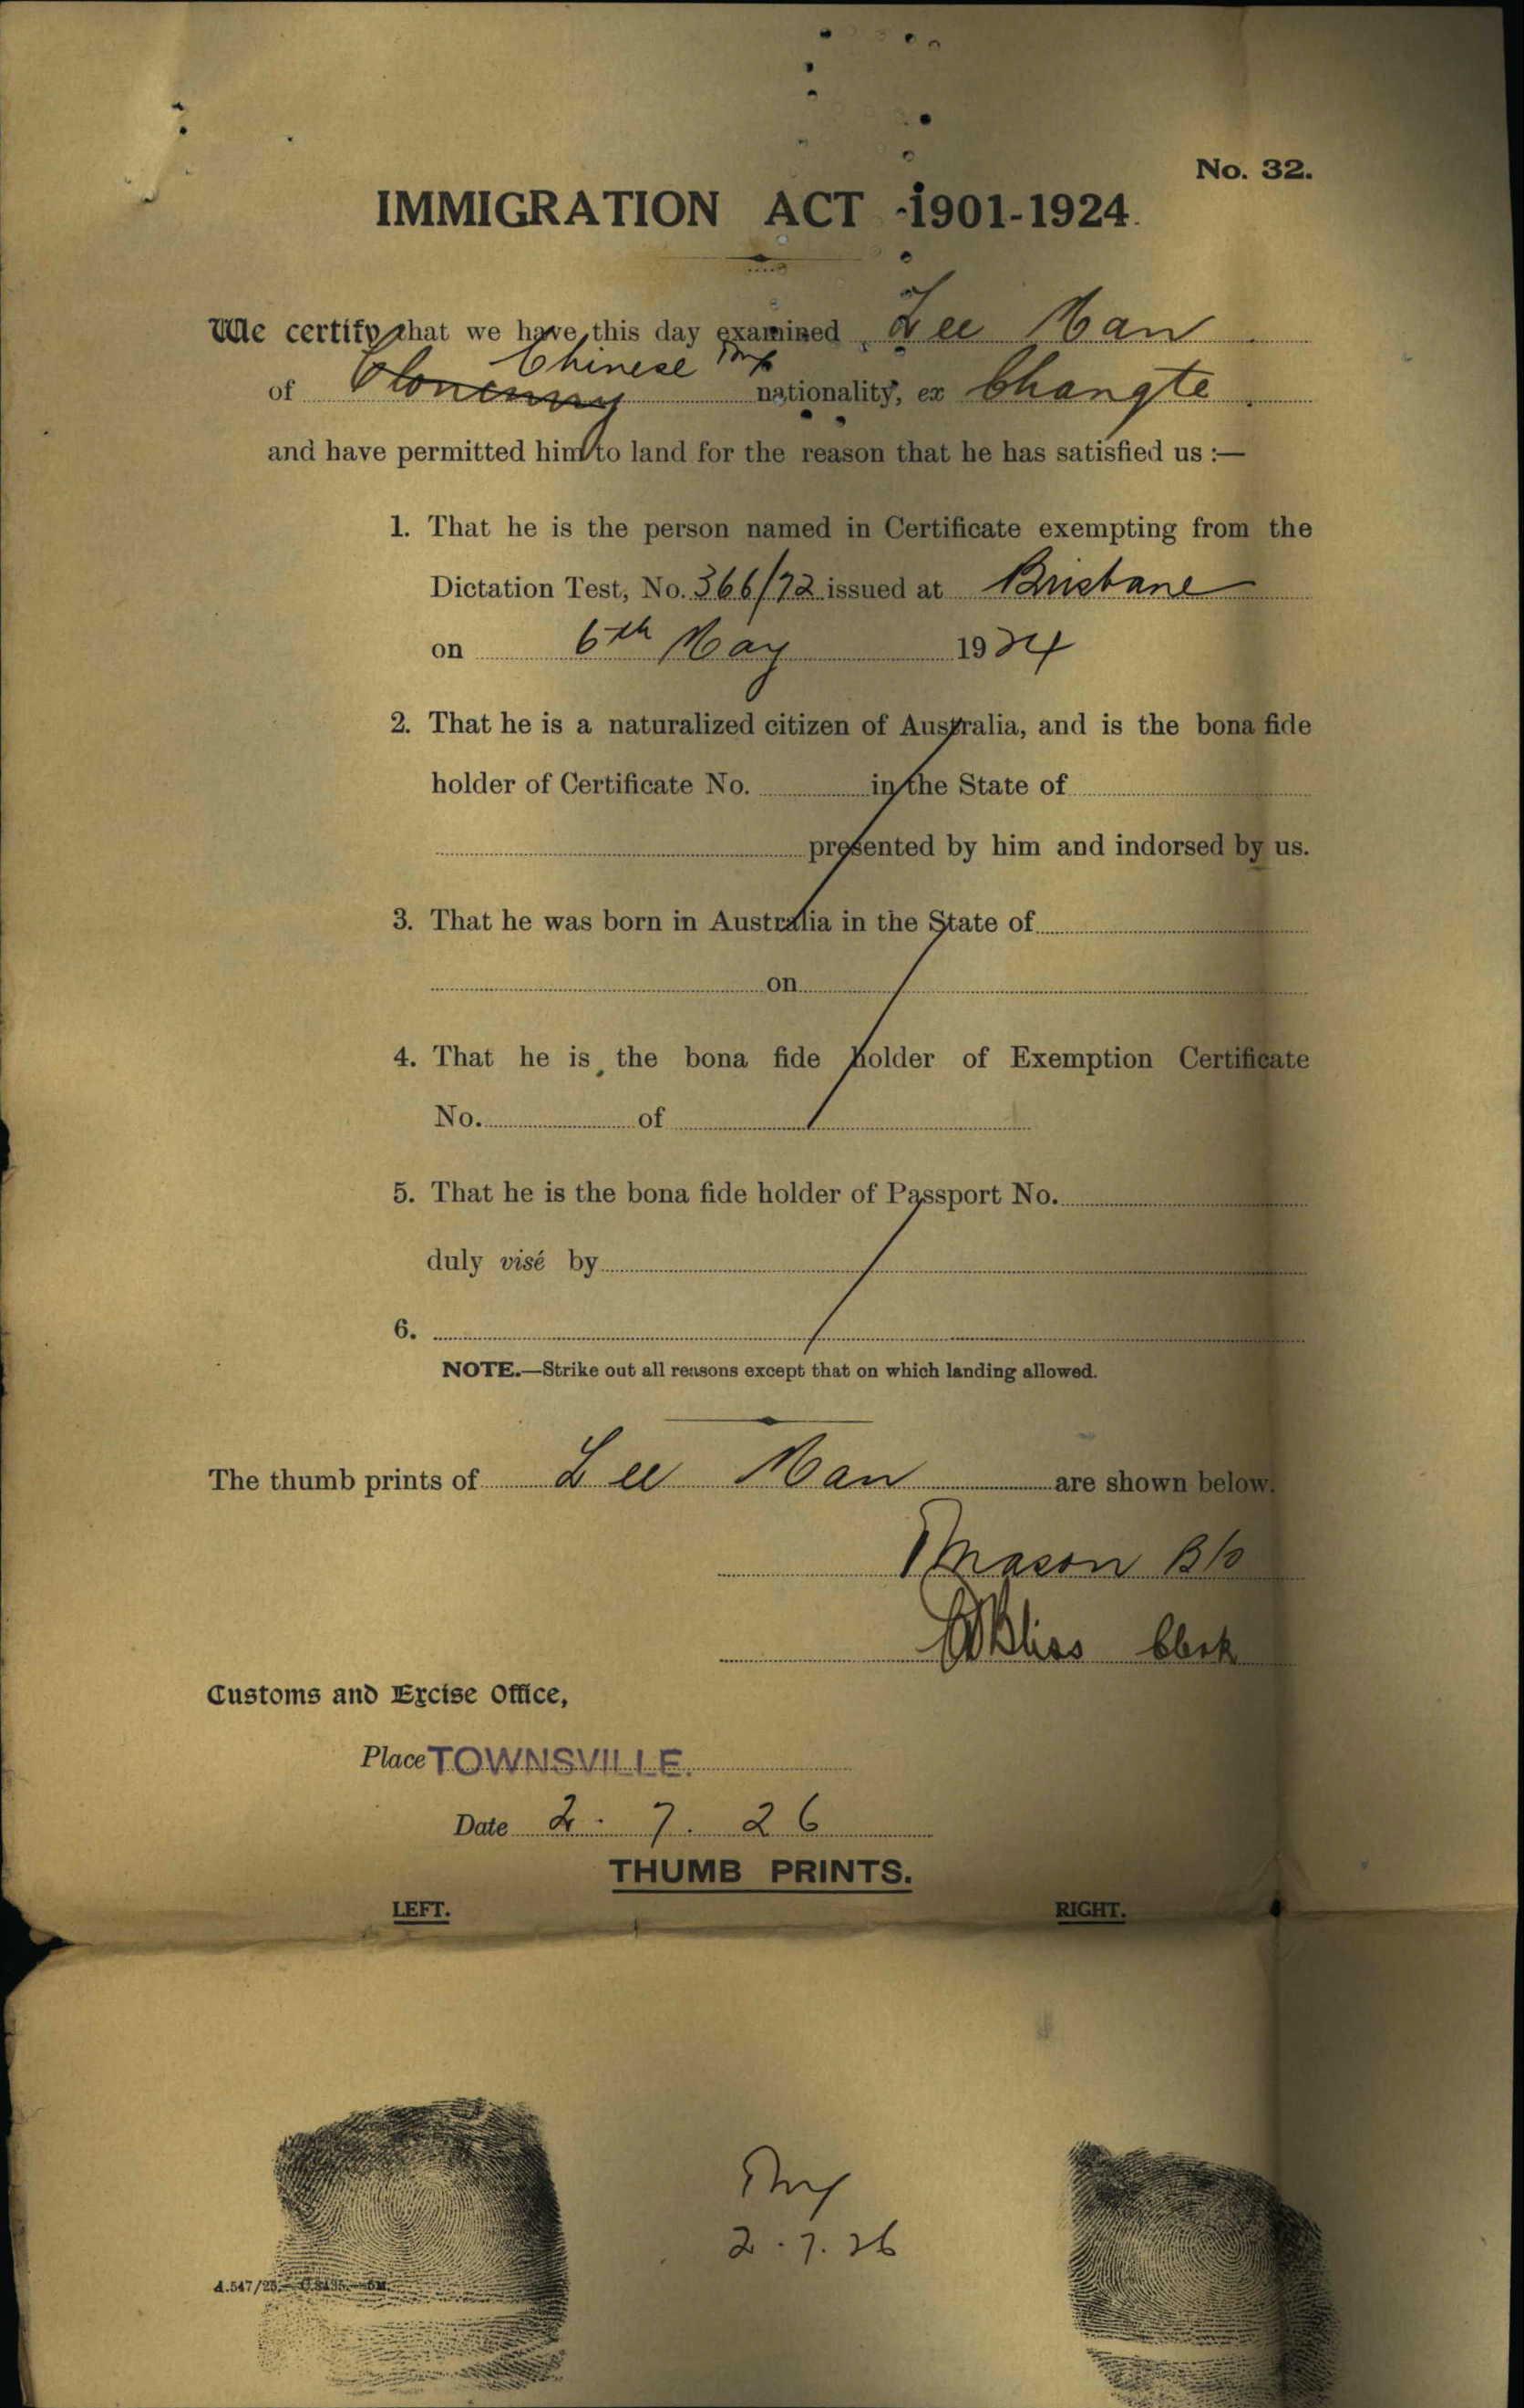 No. 32.
IMMIGRATION ACT 1901-1924.
We certify that we have this day examined Lee Man
Chinese
of nationality, ex Changte
and have permitted him to land for the reason that he has satisfied us :—
1. That he is the person named in Certificate exempting from the
Dictation Test, No. 366/72 issued at Brisbane
on 6th May 1924
2. That he is a naturalized citizen of Australia, and is the bona fide
holder of Certificate No. in the State of
presented by him and indorsed by us.
3. That he was born in Australia in the State of
on
4. That he is the bona fide holder of Exemption Certificate
No. of
5. That he is the bona fide holder of Passport No.
duly visé by
6.
NOTE.—Strike out all reasons except that on which landing allowed.
The thumb prints of Lee Man are shown below.
Mason B/O
Bliss Clerk
Customs and Excise Office,
Place TOWNSVILLE.
Date 2. 7. 26
THUMB PRINTS.
LEFT. RIGHT.
2.7.26
A.547/25.